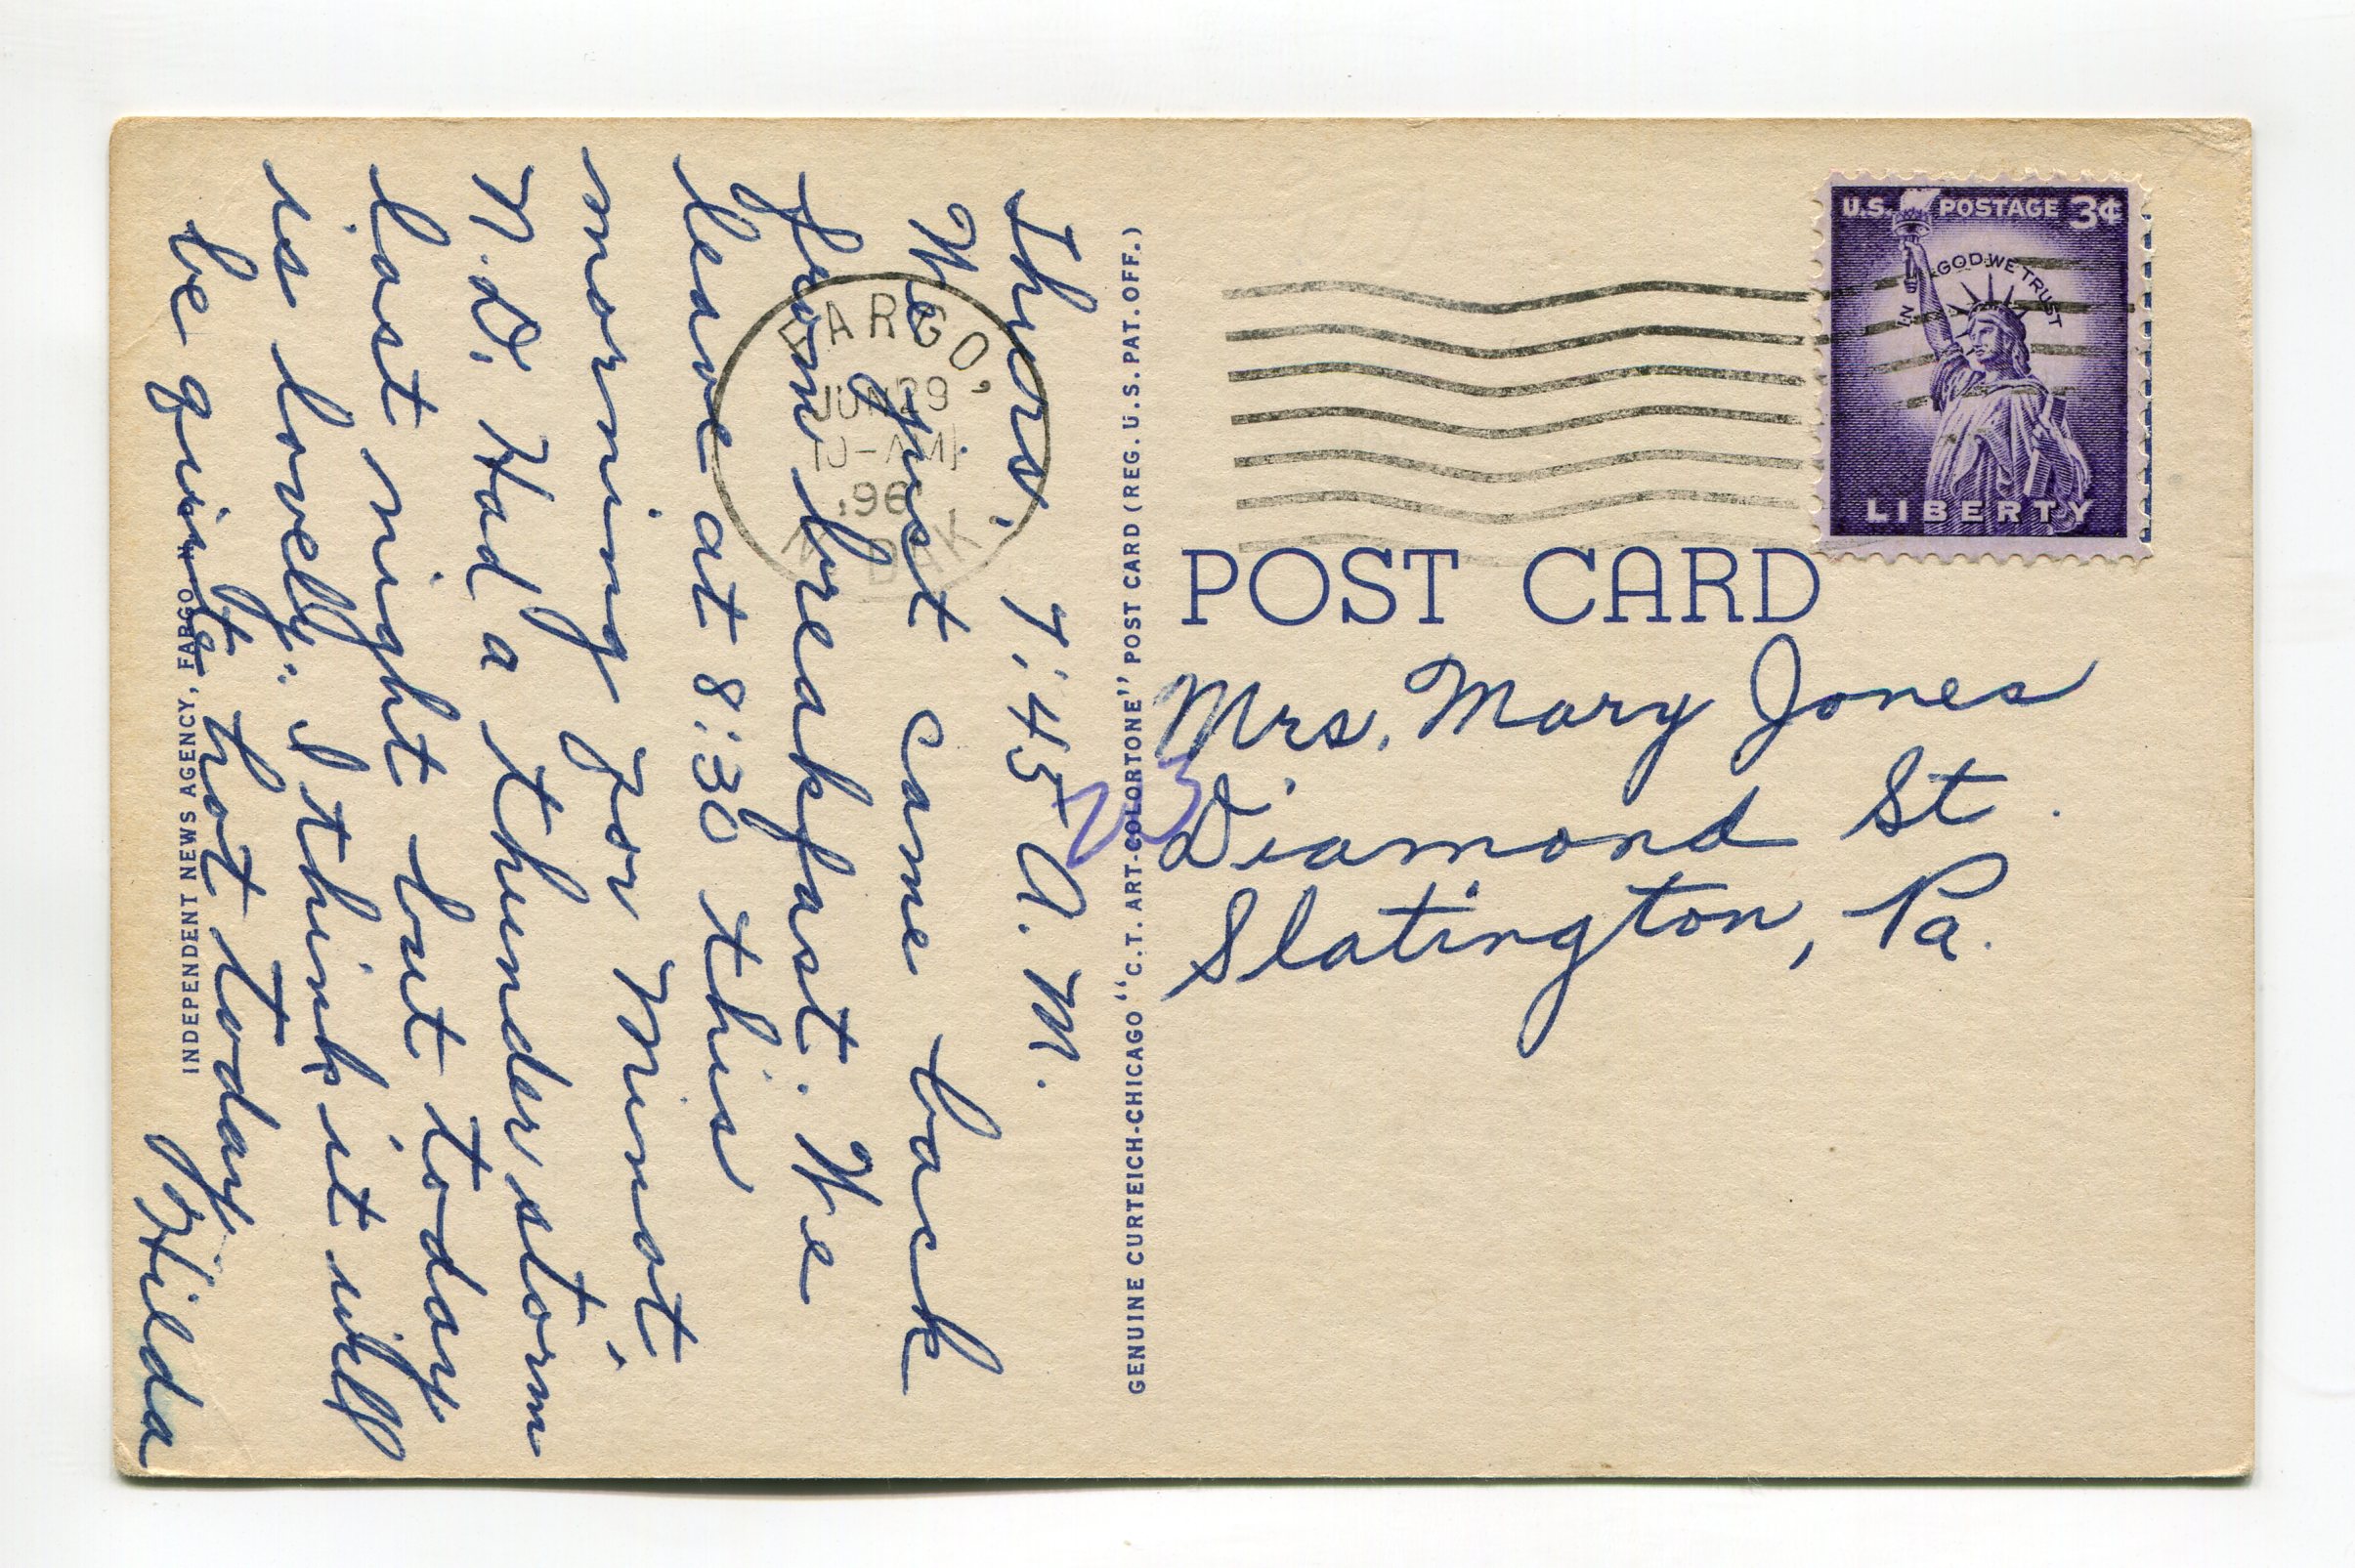 Thurs. 7:45 A.M.
We just came back
from breakfast. We
leave at 8:30 this
morning for Minot,
N.D. Had a thunderstorm
last night but today
is lovely. I think it will
be quite hot today.
Hilda
INDEPENDENT NEWS AGENCY, FARGO
FARGO,
JUN 29
N. DAK
GENUINE CURTEICH-CHICAGO "C.T. ART-COLORTONE" POST CARD (REG. U.S. PAT. OFF.)
U.S. POSTAGE 3¢
IN GOD WE TRUST
LIBERTY
POST CARD
Mrs. Mary Jones
23
Diamond St.
Slatington, Pa.